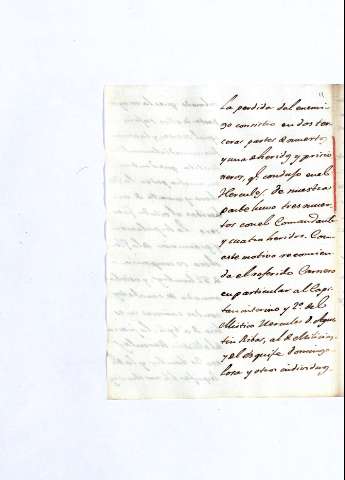 La perdida del enemi-
go consistio en dos ter-
ceras partes de muertos
y una de heridos y prisio
neros, q.e condujo en el
Hercules. De nuestra
parte hubo tres muer-
tos con el Comandante
y cuatro heridos. Con
este motivo recomien-
da el referido Carnero
en particular al Capi-
tan interino y 2.o del
Mistico Hercules D. Agus
tin Ribas, al de
y al de Domingo
y otros individuos